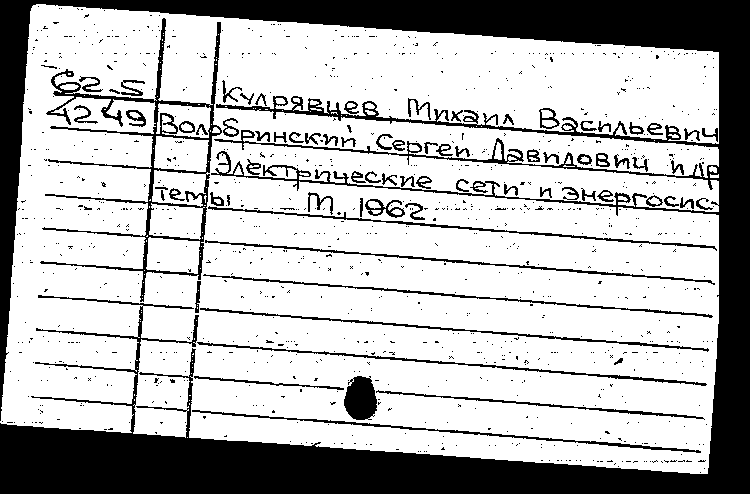 62-5 Кудрявцев, Михаил Васильевич
4249 Волобринский, Сергей Давидович и др
Электрические сети и энергосис-
темы. М., 1962.